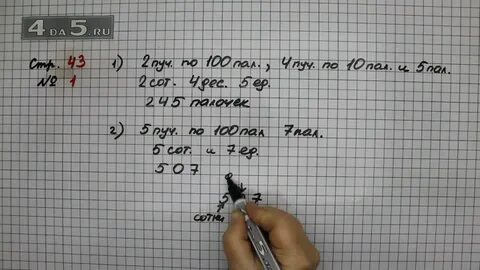 4 ДА 5.RU
Стр. 43 1) 2 пуч. по 100 пал., 4 пуч. по 10 пал. и 5 пал.
№ 1 2 сот. 4 дес. 5 ед.
245 палочек
2) 5 пуч. по 100 пал 7 пал.
5 сот. и 7 ед.
507
5 7
сотни